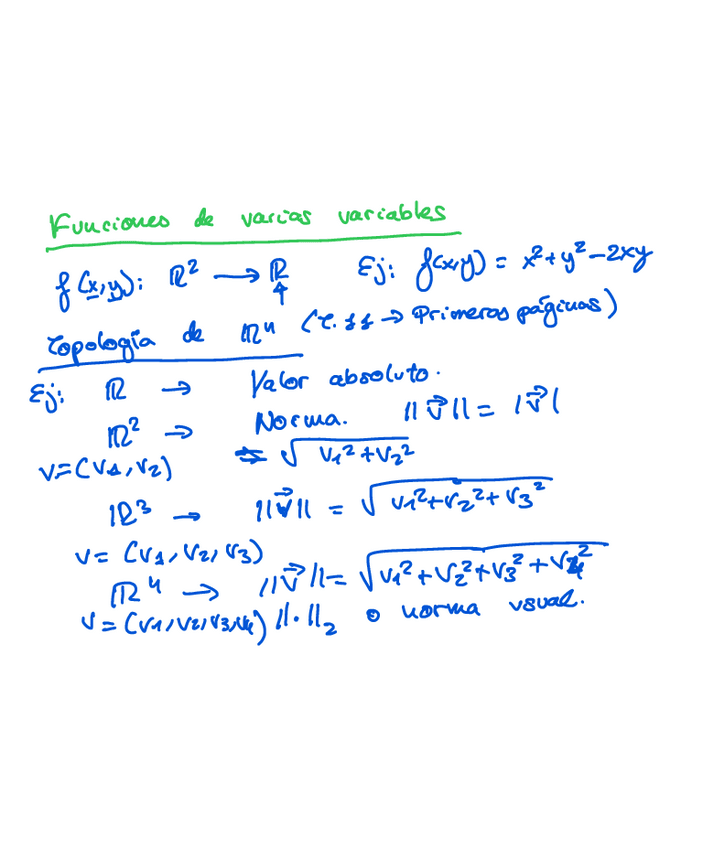 Funciones de varias variables
f(x,y): ℝ² → ℝ Ej: f(x,y) = x²+y²-2xy
↑
Topología de ℝⁿ ( → Primeras páginas)
Ej: ℝ → Valor absoluto.
ℝ² → Norma. ||v⃗|| = |v⃗|
v=(v₁,v₂) = √(v₁²+v₂²)
ℝ³ → ||v⃗|| = √(v₁²+v₂²+v₃²)
v= (v₁,v₂,v₃)
ℝ⁴ → ||v⃗||= √(v₁²+v₂²+v₃²+v₄²)
v=(v₁,v₂,v₃,v₄) ||·||₂ o norma usual.